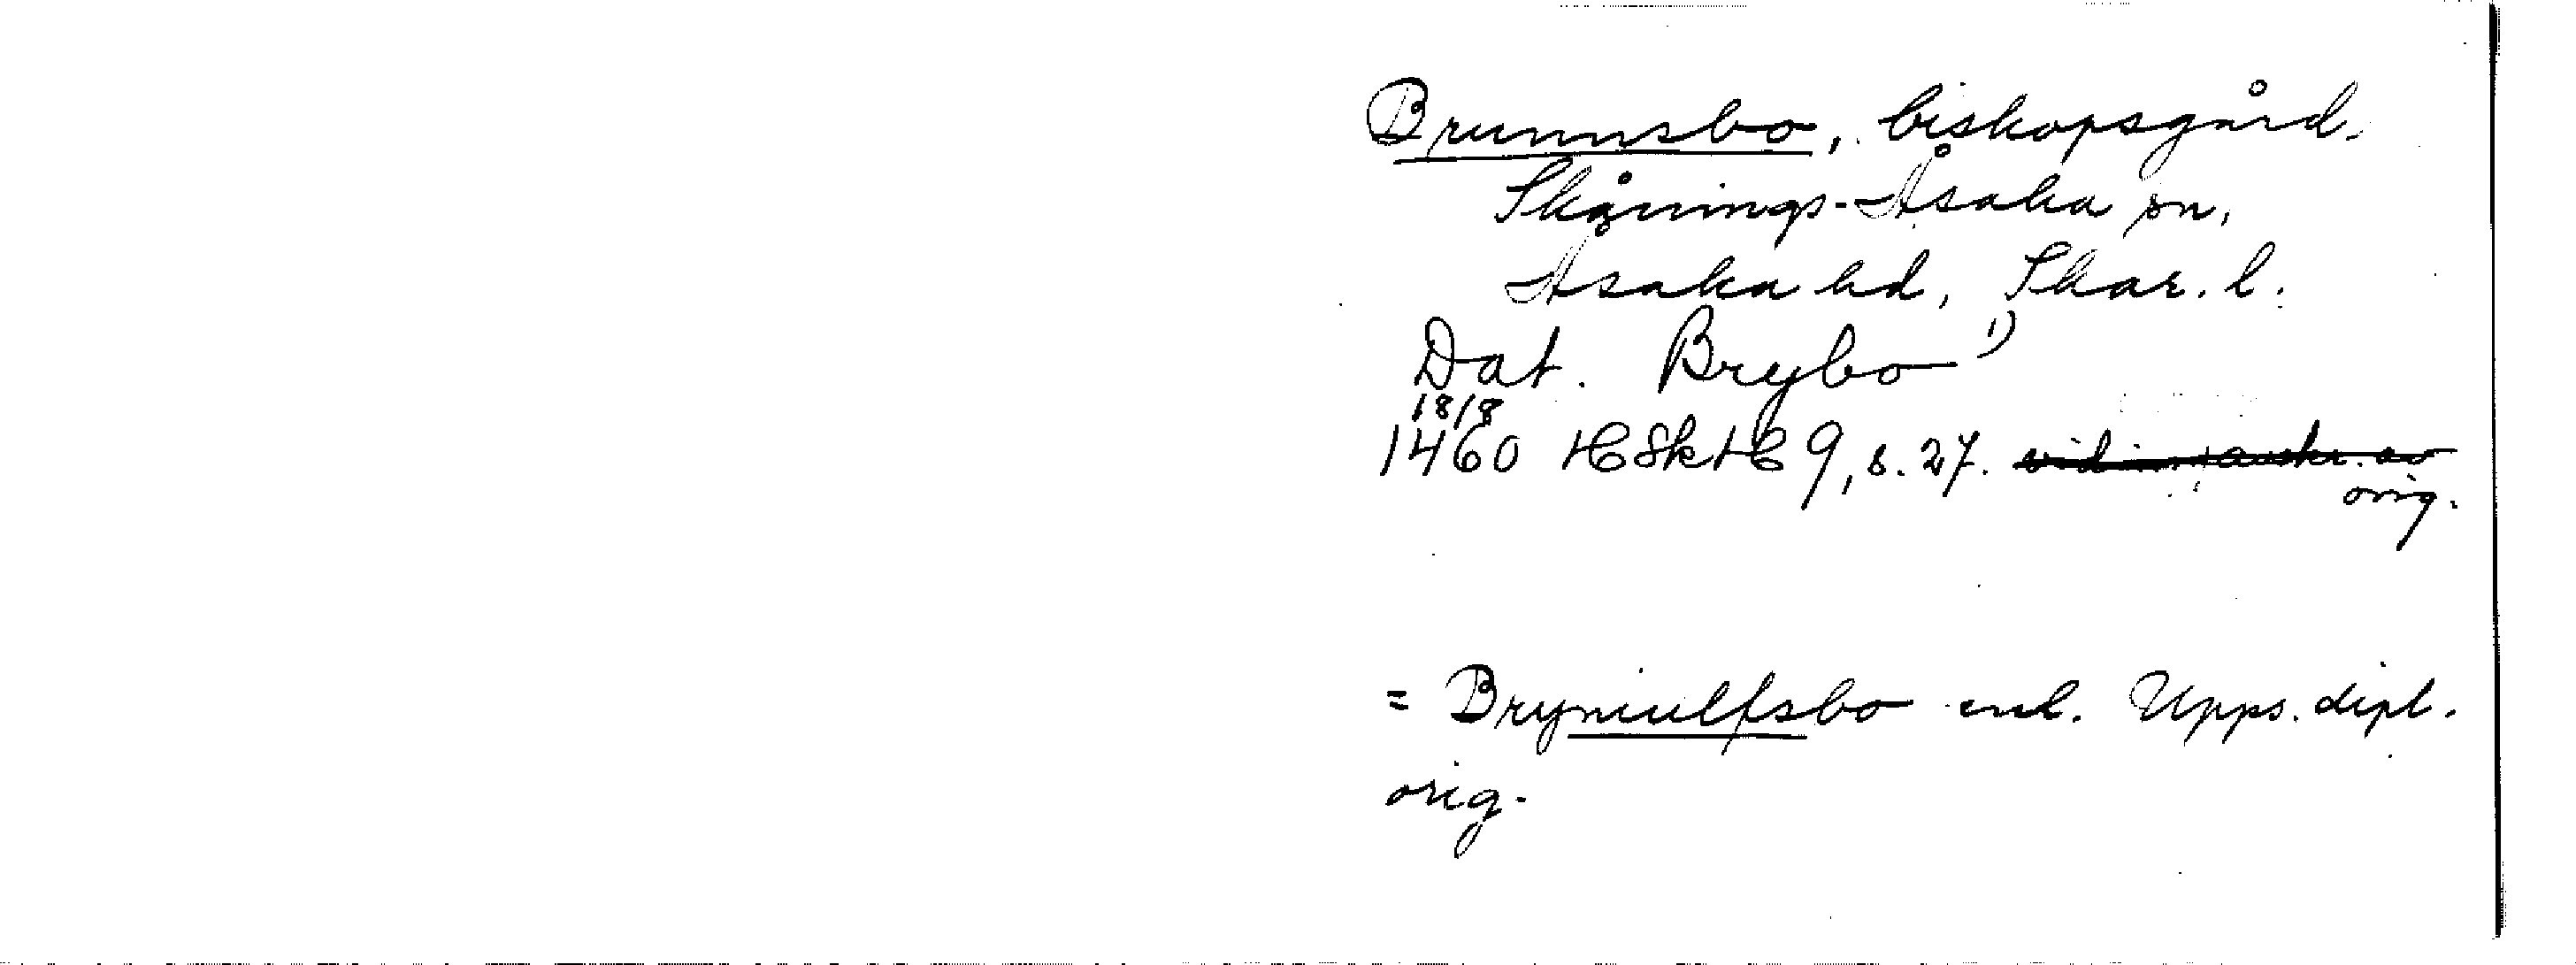 Brunnsbo, biskopsgård.
Skånings-Åsaka sn,
Åsaka hd, Skar. l.
Dat. Brybo 1)
18/8
1460 HSkH 9, s. 27. vidim. avskr. av
orig.
= Bryniulfsbo enl. Upps. dipl.
orig.